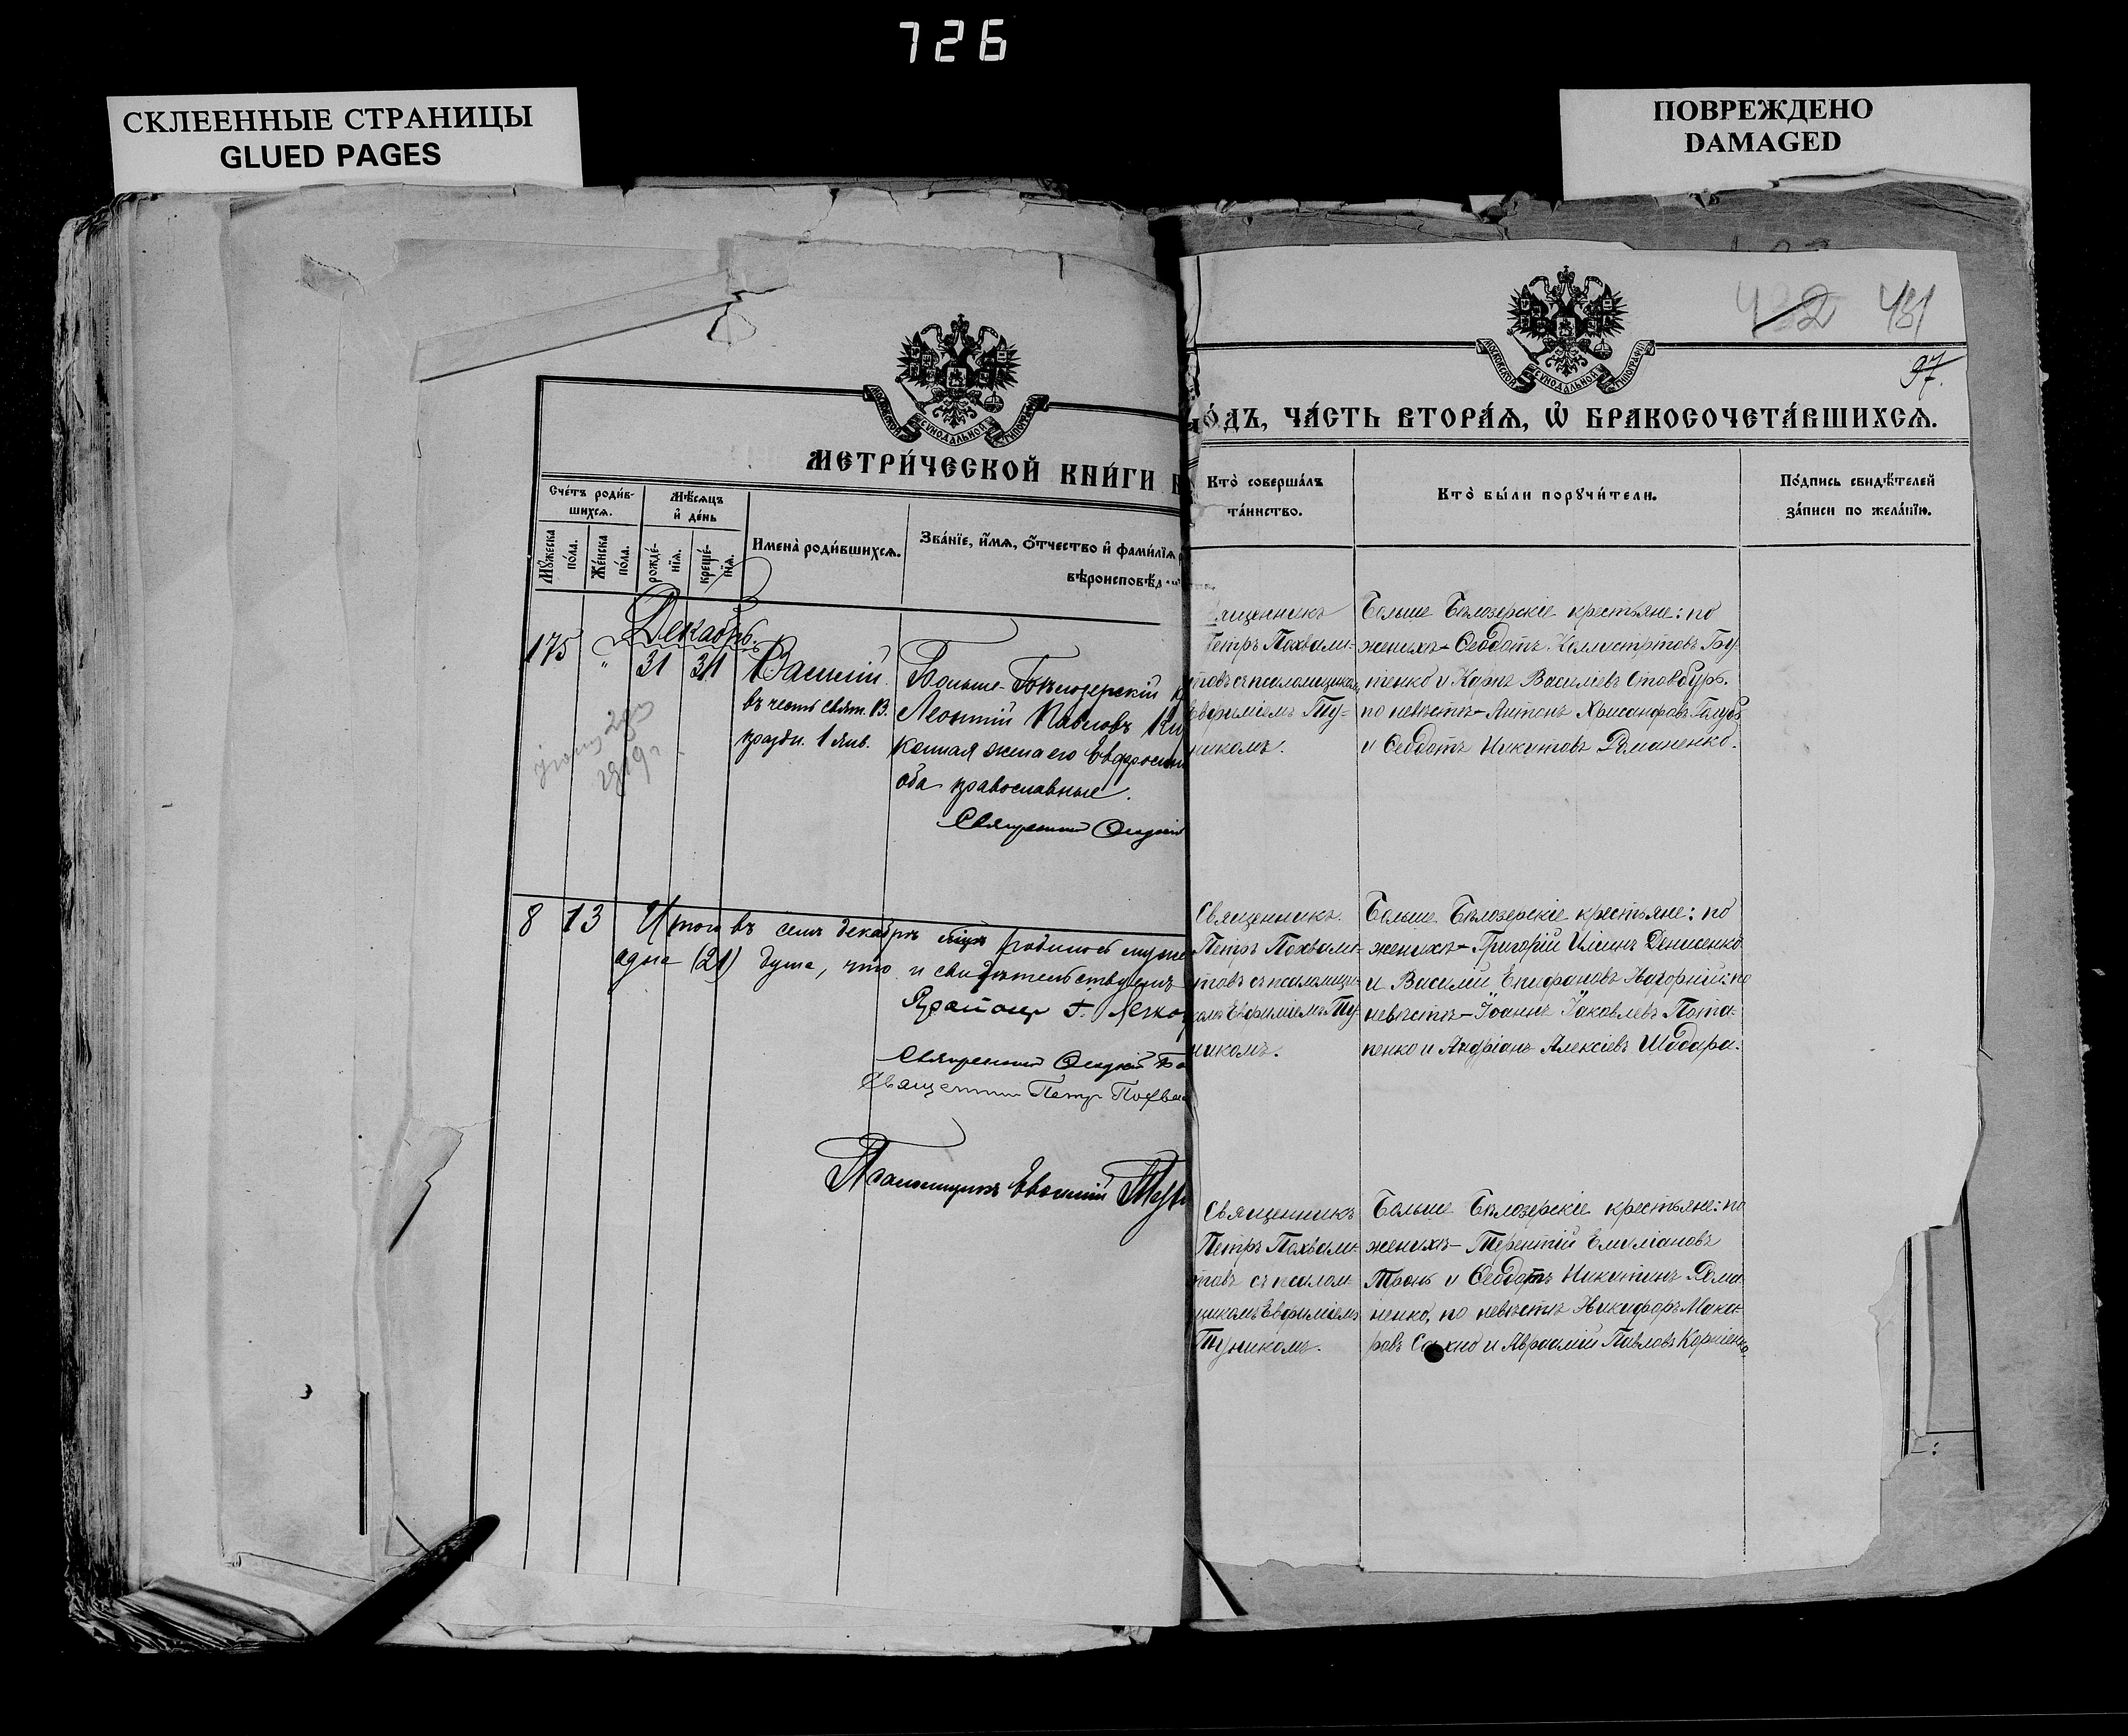 726
СКЛЕЕННЫЕ СТРАНИЦЫ
GLUED PAGES
ПОВРЕЖДЕНО
DAMAGED
МОСКОВСКОЙ СУНОДАЛЬНОЙ ТИПОГРАФІИ
МЕТРИ́ЧЕСКОЙ КНИ́ГИ
Счётъ роди́в-
шихсѧ.
Мѣ́сѧцъ
и҆ де́нь
Мꙋ́жеска
по́ла.
Же́нска
по́ла.
рожде́-
нїѧ.
креще́-
нїѧ.
Имена̀ роди́вшихсѧ.
Зва́нїе, и҆́мѧ, ѻ҆́тчество и҆ фами́лїѧ
вѣроисповѣд
Декабрь.
175 " 31 31
Василій
въ честь свят. В.
праздн. 1 янв.
Больше-Бѣлозерскій
Леонтій Павловъ
конная жена его
оба православные.
Священникъ
8 13 Итого въ семъ декабрѣ мѣсяцѣ родилось
одна (21) душа, что и свидѣтельствуемъ
Священникъ
Священникъ Петръ
Псаломщикъ Евфимій
432 431
97.
О́ДЪ, ЧА́СТЬ ВТОРА́Ѧ, Ѽ БРАКОСОЧЕТА́ВШИХСѦ.
Кто̀ соверша́лъ
та́инство.
Кто̀ бы́ли порꙋчи́тели.
По́дпись свидѣ́телей
за́писи по жела́нїю.
ященникъ
Петръ Похвали-
товъ съ псаломщикомъ
Евфиміемъ Ту-
никомъ.
Больше Бѣлозерскіе крестьяне: по
женихѣ - Ѳеодотъ Каллистратовъ Бу-
тенко и Карпъ Василіевъ Стовбуръ.
по невѣстѣ - Антонъ Хрисанфовъ Голубъ
и Ѳеодотъ Никитовъ Романенко.
Священникъ
Петръ Похвали-
товъ съ псаломщи-
комъ Евфиміемъ Ту-
никомъ.
Больше Бѣлозерскіе крестьяне: по
женихѣ - Григорій Иліинъ Денисенко
и Василій Епифановъ Нагорный: по
невѣстѣ - Іоаннъ Іаковлевъ Пота-
пенко и Андріанъ Алексіевъ Шодара.
Священникъ
Петръ Похвали-
товъ съ псалом-
щикомъ Евфиміемъ
Туникомъ.
Больше Бѣлозерскіе крестьяне: по
женихѣ - Терентій
Тронь и Ѳеодотъ Никитинъ Рома-
ненко, по невѣстѣ Никифоръ Мака-
ровъ Сахно и Авраамій Павловъ Корніенко.